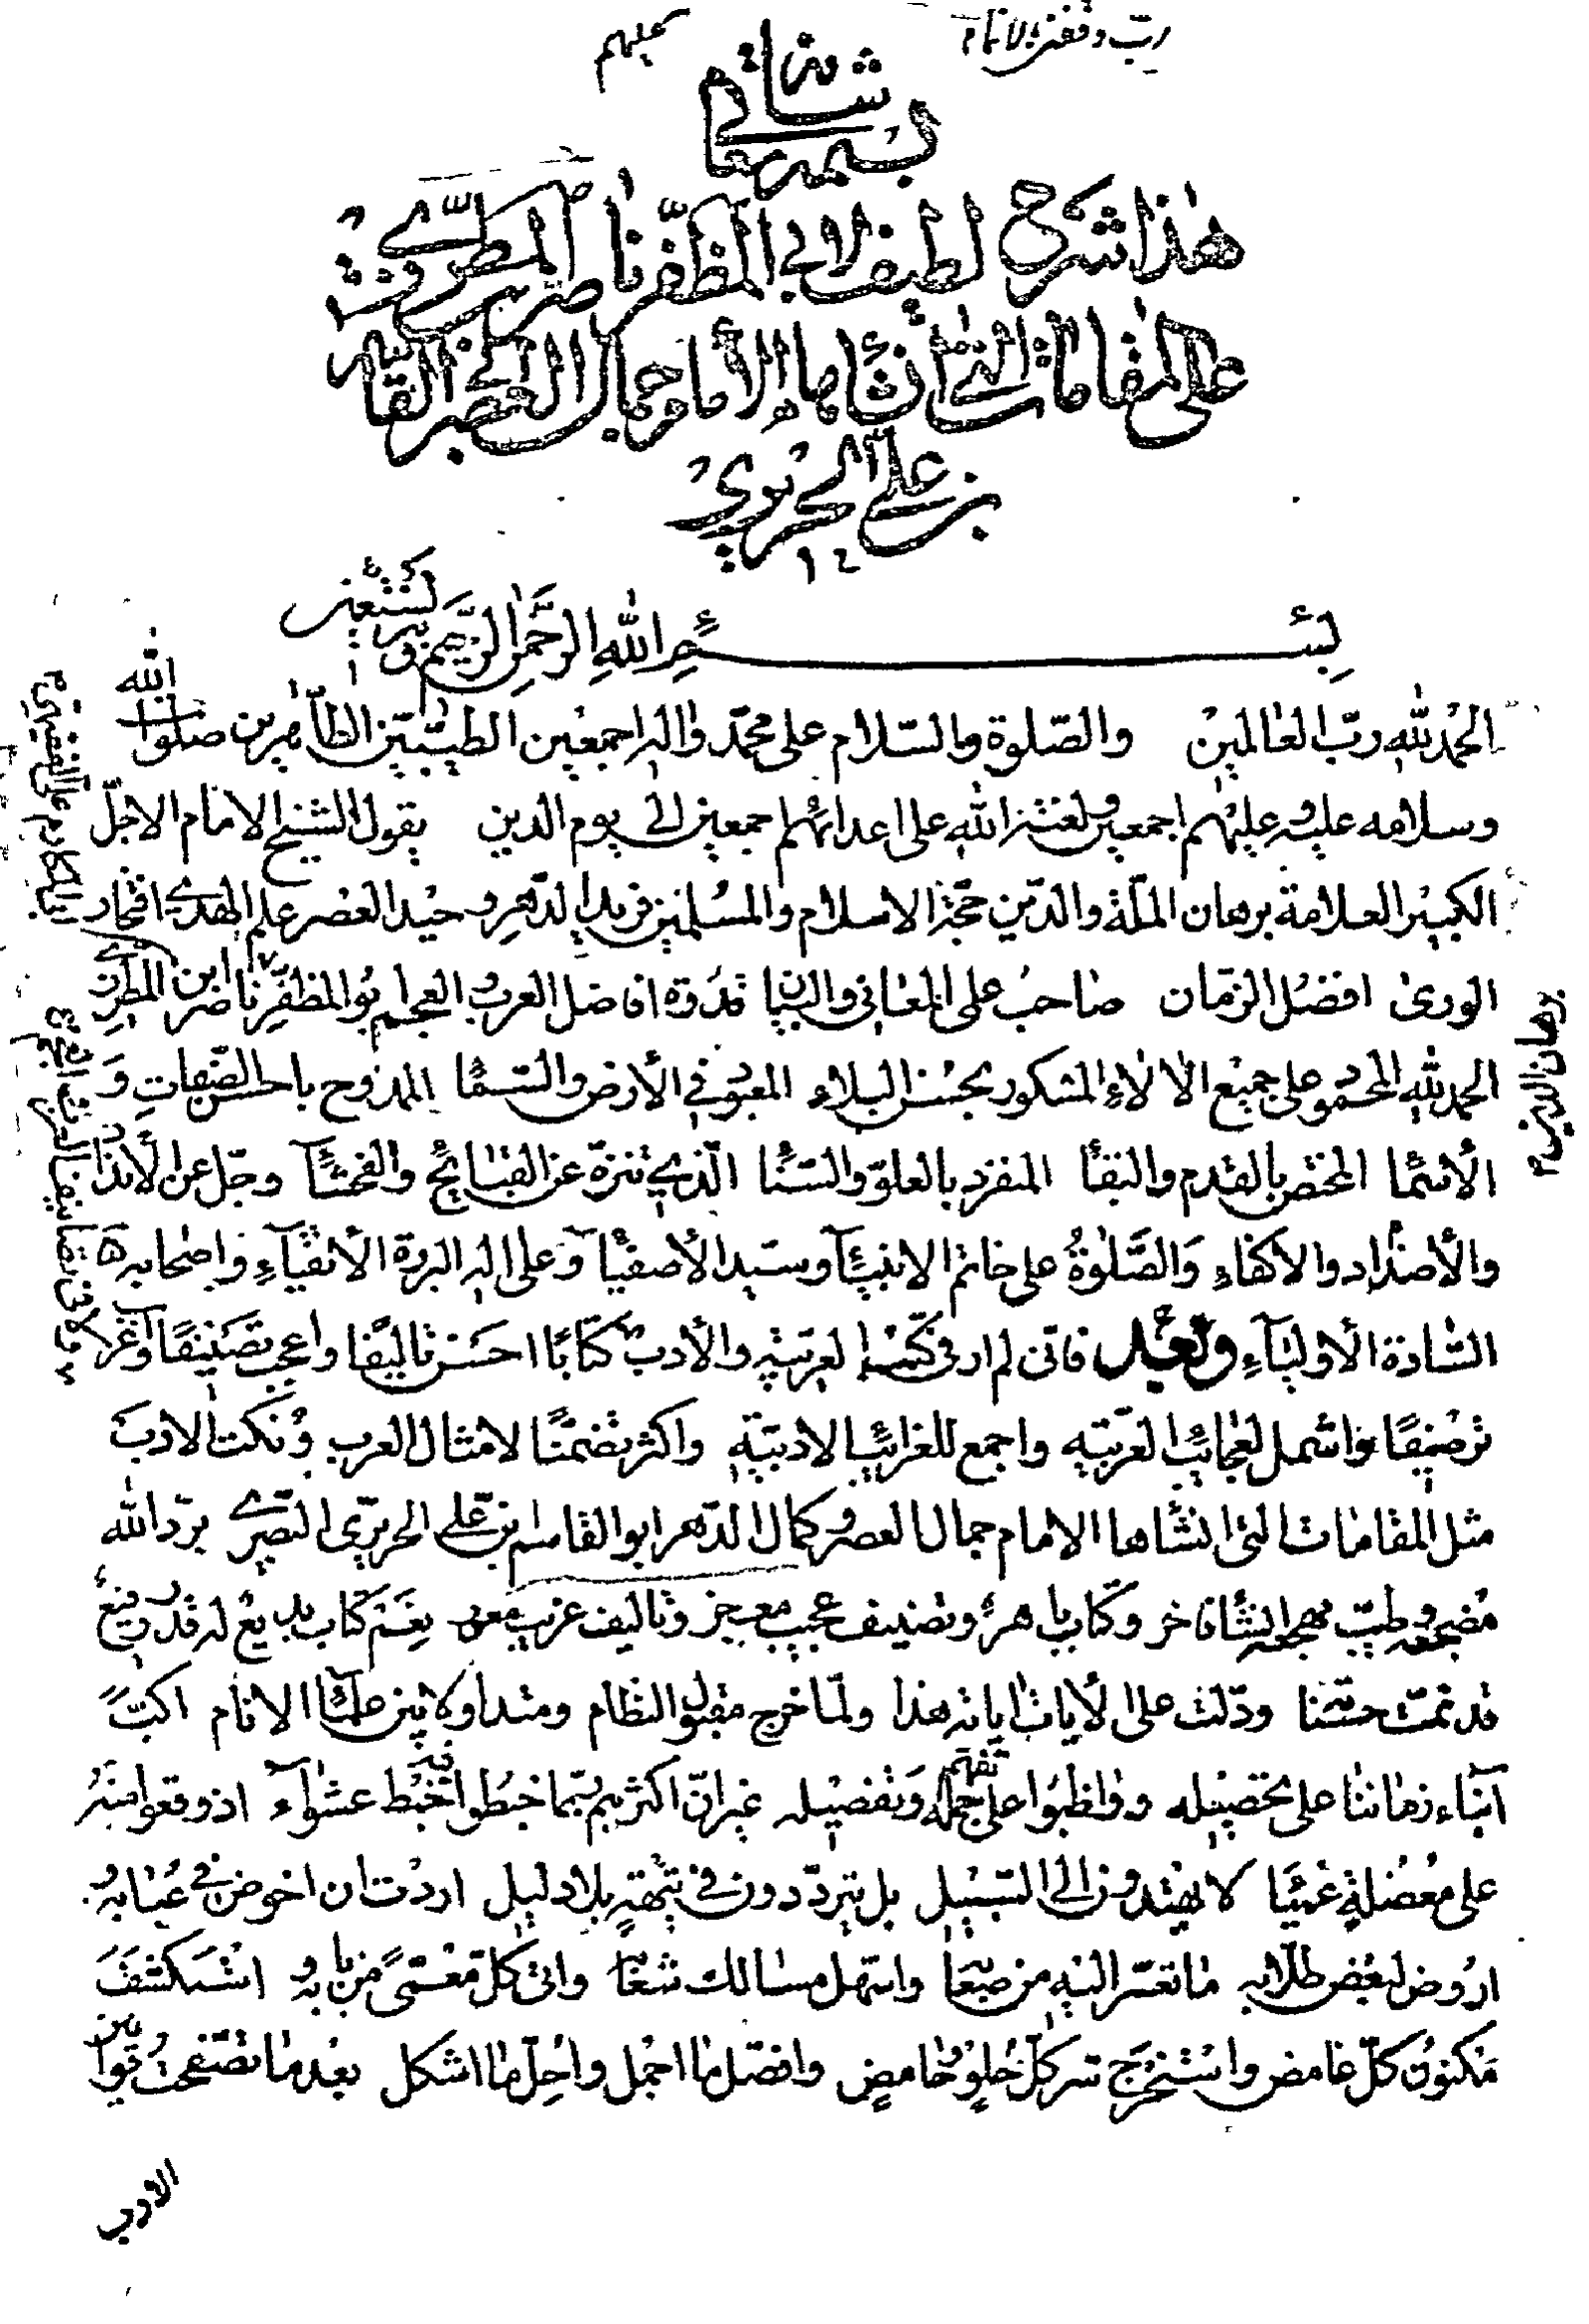 رب وفقني لاتمام
عليهم
بسمه تعالى شانه
هذا شرح لطيف لابي المظفر ناصر بن المطرزي
على المقامات التي انشاها الامام جمال العصر ابي القاسم
بن علي الحريري
بسم الله الرحمن الرحيم وبه نستعين
الحمد لله رب العالمين والصلوة والسلام على محمد واله اجمعين الطيبين الطاهرين صلوات الله
وسلامه عليه وعليهم اجمعين ولعنة الله على اعدائهم اجمعين الى يوم الدين يقول الشيخ الامام الاجل
الكبير العلامة برهان الملة والدين حجة الاسلام والمسلمين فريد الدهر وحيد العصر علم الهدى افتخار
الورى افضل الزمان صاحب على المعاني والبيان قدوة افاضل العرب والعجم ابو المظفر ناصر ابن المطرزي
الحمد لله المحمود على جميع الالاء المشكور بحسن البلاء المعبود في الأرض والسما الممدوح باحسن الصفات و
الأسما المختص بالقدم والبقا المنفرد بالعلو والسنا الذي تنزه عن القبايح والفحشا وجل عن الأنداد
والأضداد والاكفاء والصلوة على خاتم الانبيا وسيد الأصفيا وعلى اله البررة الأتقياء واصحابه
السادة الأولياء وبعد فانى لم ار في كتب العربية والأدب كتابا احسن تاليفا واعجب تصنيفا واغرب
ترصيفا واشمل لعجائب العربية واجمع للغرائب الادبية واكثر تضمنا لامثال العرب ونكت الادب
مثل المقامات التي انشاها الامام جمال العصر وكمال الدهر ابو القاسم بن علي الحريري البصري برد الله
مضجعه وطيب مهجعه انشا فاخر وكتاب باهر وتصنيف عجيب معجز وتاليف غريب نعم كتاب بديع له قدر رفيع
قد تمت حسنا ودلت على الأيات اياته هذا ولما خرج مقبول النظام ومتداولا بين علماء الانام اكب
ابناء زماننا على تحصيله وواظبوا على تفهم جمله وتفصيله غير ان اكثرهم ربما خبطوا فيه خبط عشواء اذ وقعوا منه
على معضلة عميا لا يهتدون الى السبيل بل يترددون في تيهة بلا دليل اردت ان اخوض في عبابه و
اروض لبعض طلابه ما تعسر اليه من صعابه واسهل مسالك شعابه واتى كل معمى من بابه و استكشف
مكنون كل غامض واستخرج سر كل حلو وحامض وافصل ما اجمل واحل ما اشكل بعد ما تصفحت دواوين
الادب
برهان الدين